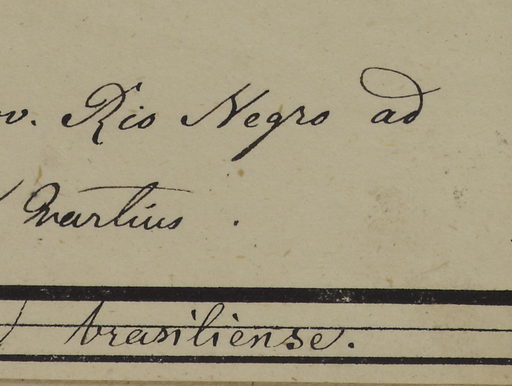 ov. Rio Negro ad
Martius .
brasiliense.